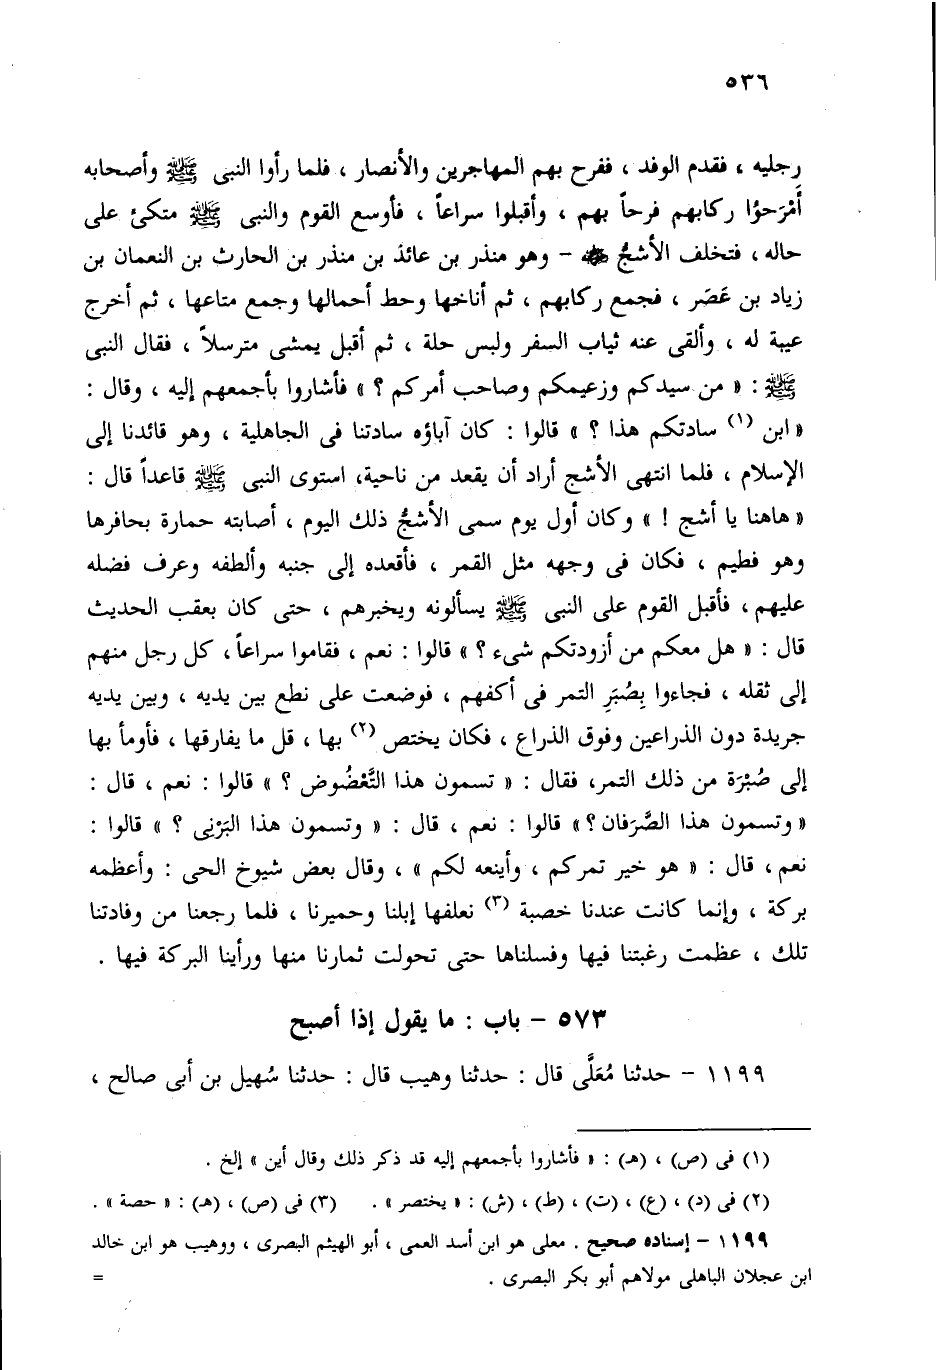 ٥٣٦
رجليه ، فقدم الوفد ، ففرح بهم المهاجرين والأنصار ، فلما رأوا النبى ﷺ وأصحابه
أَمْرَحوُا ركابهم فرحاً بهم ، وأقبلوا سراعاً ، فأوسع القوم والنبى ﷺ متكئ على
حاله ، فتخلف الأشجُّ – وهو منذر بن عائذ بن منذر بن الحارث بن النعمان بن
زياد بن عَصَر ، فجمع ركابهم ، ثم أناخها وحط أحمالها وجمع متاعها ، ثم أخرج
عيبة له ، وألقى عنه ثياب السفر ولبس حلة ، ثم أقبل يمشى مترسلاً ، فقال النبى
ﷺ : « من سيدكم وزعيمكم وصاحب أمركم ؟ » فأشاروا بأجمعهم إليه ، وقال :
« ابن (١) سادتكم هذا ؟ » قالوا : كان آباؤه سادتنا فى الجاهلية ، وهو قائدنا إلى
الإسلام ، فلما انتهى الأشج أراد أن يقعد من ناحية، استوى النبى ﷺ قاعداً قال :
« هاهنا يا أشج ! » وكان أول يوم سمى الأشجُّ ذلك اليوم ، أصابته حمارة بحافرها
وهو فطيم ، فكان فى وجهه مثل القمر ، فأقعده إلى جنبه وألطفه وعرف فضله
عليهم ، فأقبل القوم على النبى ﷺ يسألونه ويخبرهم ، حتى كان بعقب الحديث
قال : « هل معكم من أزودتكم شىء ؟ » قالوا : نعم ، فقاموا سراعاً، كل رجل منهم
إلى ثقله ، فجاءوا بِصُبَرِ التمر فى أكفهم ، فوضعت على نطع بين يديه ، وبين يديه
جريدة دون الذراعين وفوق الذراع ، فكان يختص (٢) بها ، قل ما يفارقها ، فأومأ بها
إلى صُبْرَة من ذلك التمر، فقال : « تسمون هذا التَّعْضُوض ؟ » قالوا : نعم ، قال :
« وتسمون هذا الصَّرَفان ؟ » قالوا : نعم ، قال : « وتسمون هذا البَرْنِى ؟ » قالوا :
نعم ، قال : « هو خير تمركم ، وأينعه لكم » ، وقال بعض شيوخ الحى : وأعظمه
بركة ، وإنما كانت عندنا خصبة (٣) نعلفها إبلنا وحميرنا ، فلما رجعنا من وفادتنا
تلك ، عظمت رغبتنا فيها وفسلناها حتى تحولت ثمارنا منها ورأينا البركة فيها .
٥٧٣ – باب : ما يقول إذا أصبح
١١٩٩ – حدثنا مُعَلَّى قال : حدثنا وهيب قال : حدثنا سُهيل بن أبى صالح ،
(١) فى (ص) ، (هـ) : « فأشاروا بأجمعهم إليه قد ذكر ذلك وقال أين » إلخ .
(٢) فى (د) ، (ع) ، (ت) ، (ط) ، (ش) : « يختصر » . (٣) فى (ص) ، (هـ) : « حصة » .
١١٩٩ – إسناده صحيح . معلى هو ابن أسد العمى ، أبو الهيثم البصرى ، ووهيب هو ابن خالد
ابن عجلان الباهلى مولاهم أبو بكر البصرى . =